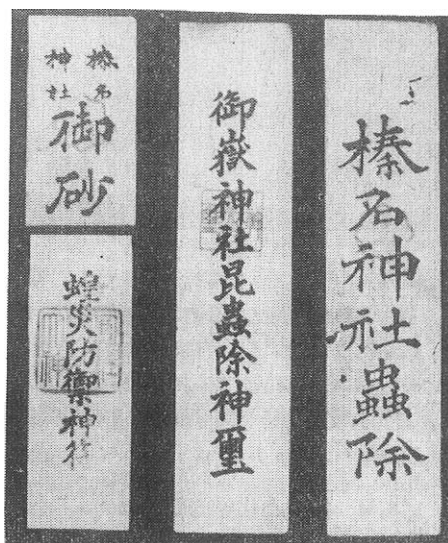 榛名神社蟲除
御嶽神社昆蟲除神璽
榛名
神社
御砂
蝗災防禦神符